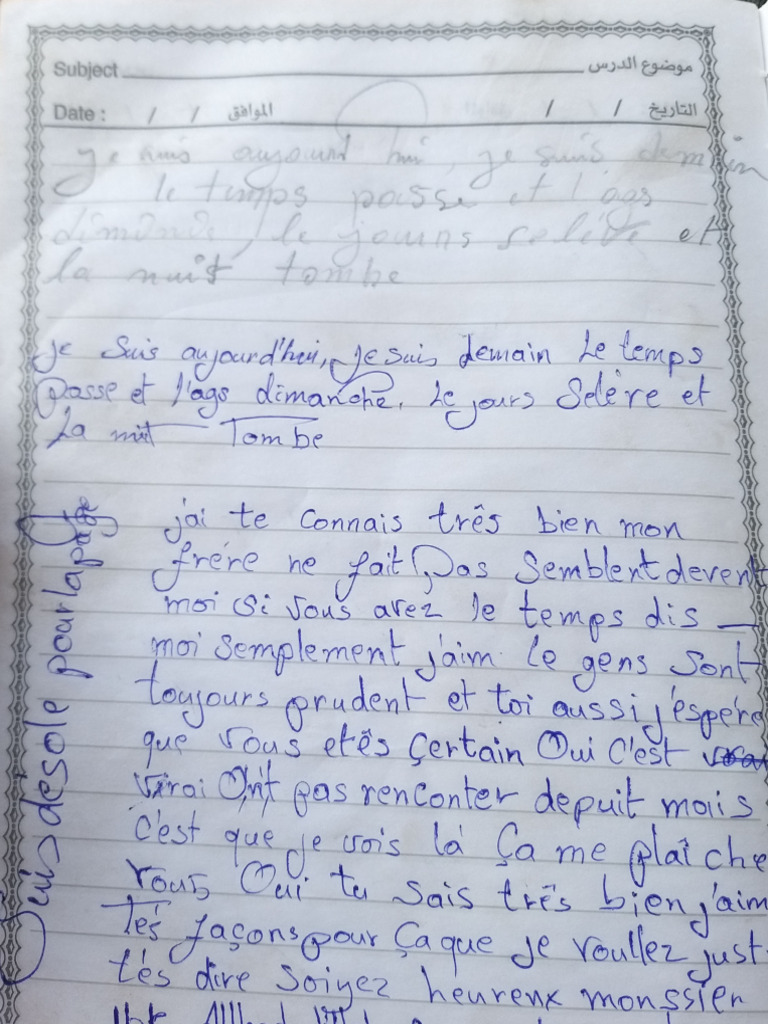 Subject موضوع الدرس
Date : / / الموافق / / التاريخ
je suis aujourd hui, je suis demain
le temps passe et l'ags
dimande, le jouns seléte et
la nuit tombe
je Suis aujourd'hui, Je suis demain Le temps
passe et l'ags dimanche. Le jours Selère et
La nuit Tombe
j'ai te connais três bien mon
frére ne fait pas Semblent devent
moi si vous avez le temps dis
moi Semplement j'aim le gens Sont
toujours prudent et toi aussi j'espére
que vous etês Çertain Oui C'est
virai Ont pas renconter depuit mais
C'est que je vois là Ça me plaî che
vous, Oui tu Sais três bien j'aim
Tés façons pour Ça que je voullez just
tés dire Soiyez heureux monssier
Suis desole pour la page